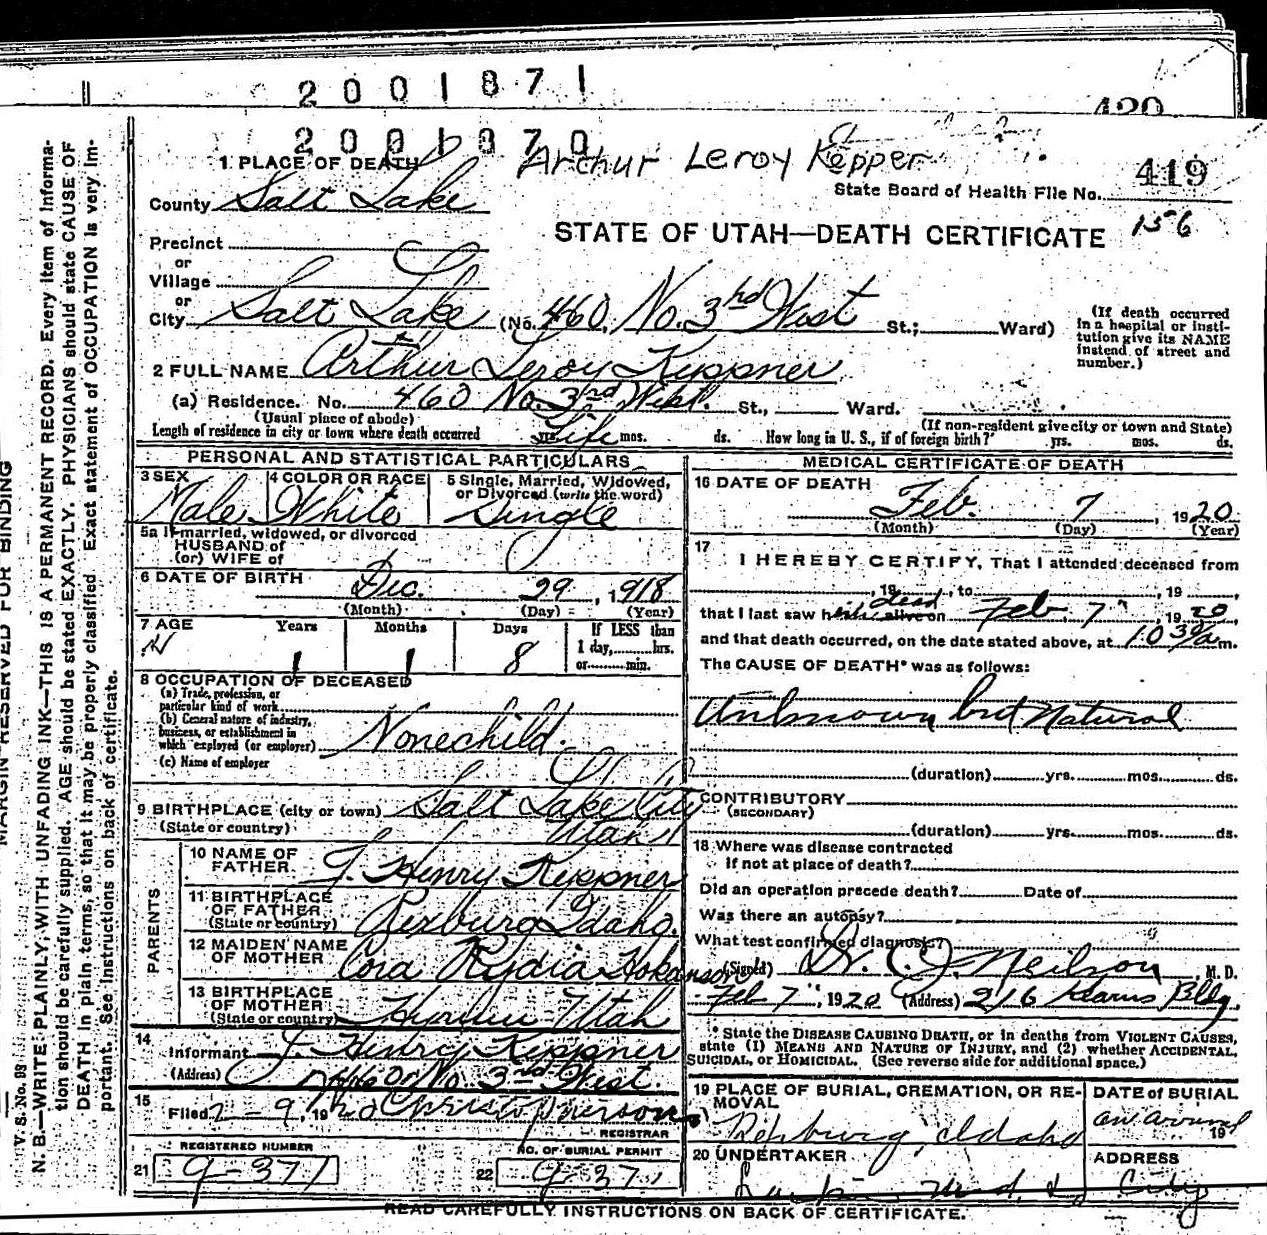 2001871
420
2001870
Arthur Leroy Kepper
1 PLACE OF DEATH
419
State Board of Health File No.
156
County Salt Lake
STATE OF UTAH—DEATH CERTIFICATE
Precinct
or
Village
or
City Salt Lake (No. 460 No. 3rd West St.; Ward)
(If death occurred in a hospital or insti-
tution give its NAME
instead of street and
number.)
2 FULL NAME Arthur Leroy Keppner
(a) Residence. No. 460 No. 3rd West. St., Ward.
(Usual place of abode) (If non-resident give city or town and State)
Length of residence in city or town where death occurred yrs. Life mos. ds. How long in U. S., if of foreign birth? yrs. mos. ds.
PERSONAL AND STATISTICAL PARTICULARS
3 SEX Male
4 COLOR OR RACE White
5 Single, Married, Widowed,
or Divorced (write the word)
Single
5a If married, widowed, or divorced
HUSBAND of
(or) WIFE of
6 DATE OF BIRTH Dec. 29, 1918
(Month) (Day) (Year)
7 AGE Years Months Days If LESS than
1 1 8 1 day, hrs.
or min.
8 OCCUPATION OF DECEASED
(a) Trade, profession, or
particular kind of work
(b) General nature of industry,
business, or establishment in
which employed (or employer) None child.
(c) Name of employer
9 BIRTHPLACE (city or town) Salt Lake City
(State or country) Utah
PARENTS
10 NAME OF
FATHER J. Henry Keppner
11 BIRTHPLACE
OF FATHER
(State or country) Rexburg Idaho.
12 MAIDEN NAME
OF MOTHER Cora Rydia Hokanson
13 BIRTHPLACE
OF MOTHER
(State or country) Hyrum Utah
14
Informant J. Henry Keppner
(Address) 460 No. 3rd West.
15
Filed 2-9, 1920
REGISTRAR
REGISTERED NUMBER
21 9-371
NO. OF BURIAL PERMIT
22 9-371
MEDICAL CERTIFICATE OF DEATH
16 DATE OF DEATH
Feb. 7, 1920
(Month) (Day) (Year)
17
I HEREBY CERTIFY, That I attended deceased from
, 19 , to , 19 ,
that I last saw him dead alive on Feb. 7", 1920,
and that death occurred, on the date stated above, at 10 30/a m.
The CAUSE OF DEATH* was as follows:
Unknown but Natural
(duration) yrs. mos. ds.
CONTRIBUTORY
(SECONDARY)
(duration) yrs. mos. ds.
18 Where was disease contracted
if not at place of death?
Did an operation precede death? Date of
Was there an autopsy?
What test confirmed diagnosis?
(Signed) Dr. C. J. Neilson, M. D.
Feb 7", 1920 (Address) 216 Kearns Bldg.
* State the DISEASE CAUSING DEATH, or in deaths from VIOLENT CAUSES,
state (1) MEANS AND NATURE OF INJURY, and (2) whether ACCIDENTAL,
SUICIDAL, or HOMICIDAL. (See reverse side for additional space.)
19 PLACE OF BURIAL, CREMATION, OR RE-
MOVAL
Rexburg, Idaho
DATE OF BURIAL
on arrival 19
20 UNDERTAKER
ADDRESS
City
READ CAREFULLY INSTRUCTIONS ON BACK OF CERTIFICATE.
MARGIN RESERVED FOR BINDING
V. S. No. 93
N. B.—WRITE PLAINLY, WITH UNFADING INK—THIS IS A PERMANENT RECORD. Every item of informa-
tion should be carefully supplied. AGE should be stated EXACTLY. PHYSICIANS should state CAUSE OF
DEATH in plain terms, so that it may be properly classified. Exact statement of OCCUPATION is very im-
portant. See instructions on back of certificate.